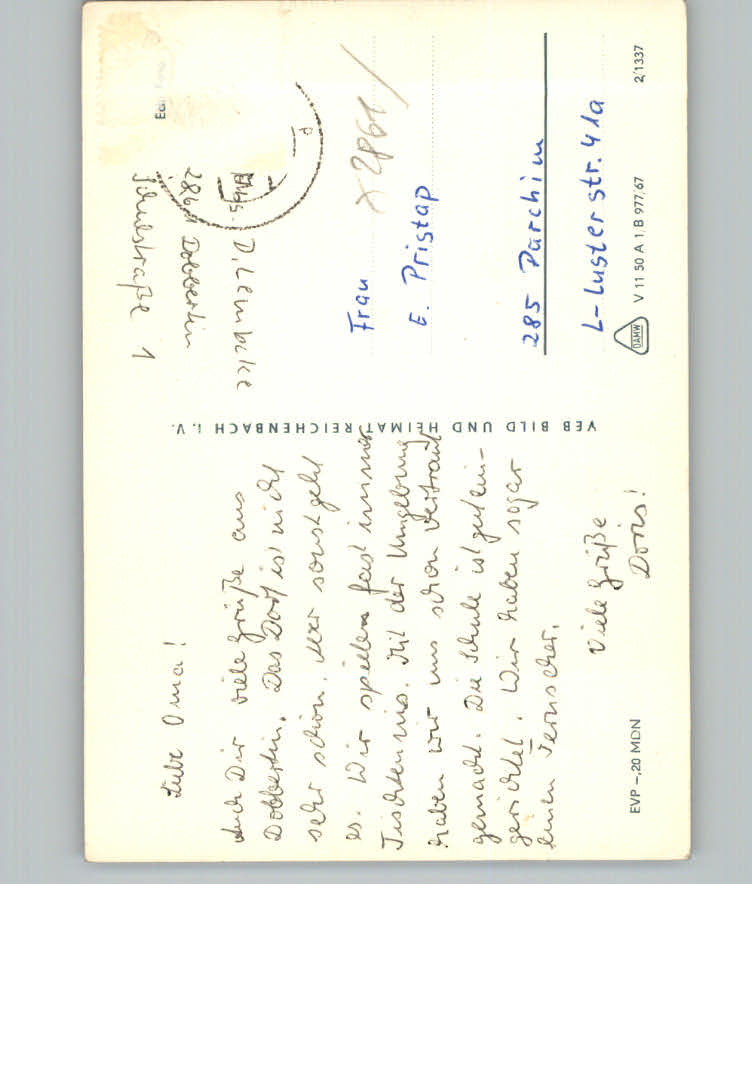 Liebe Oma!
Auch Dir viele Grüße aus
Dobbertin. Das Dorf ist nicht
sehr schön. Aber sonst geht
es. Wir spielen fast immer
Tischtennis. Mit der Umgebung
haben wir uns schon vertraut
gemacht. Die Schule ist gut ein-
gerichtet. Wir haben sogar
einen Fernseher.
Viele Grüße
Doris!
EVP –,20 MDN
VEB BILD UND HEIMAT REICHENBACH I. V.
Abs. D. Lembcke
2861 Dobbertin
Schulstraße 1
x 2861 /
Frau
E. Pristap
285 Parchim
L-Luster str. 41a
DAMW
V 11 50 A 1 B 977/67
2/1337